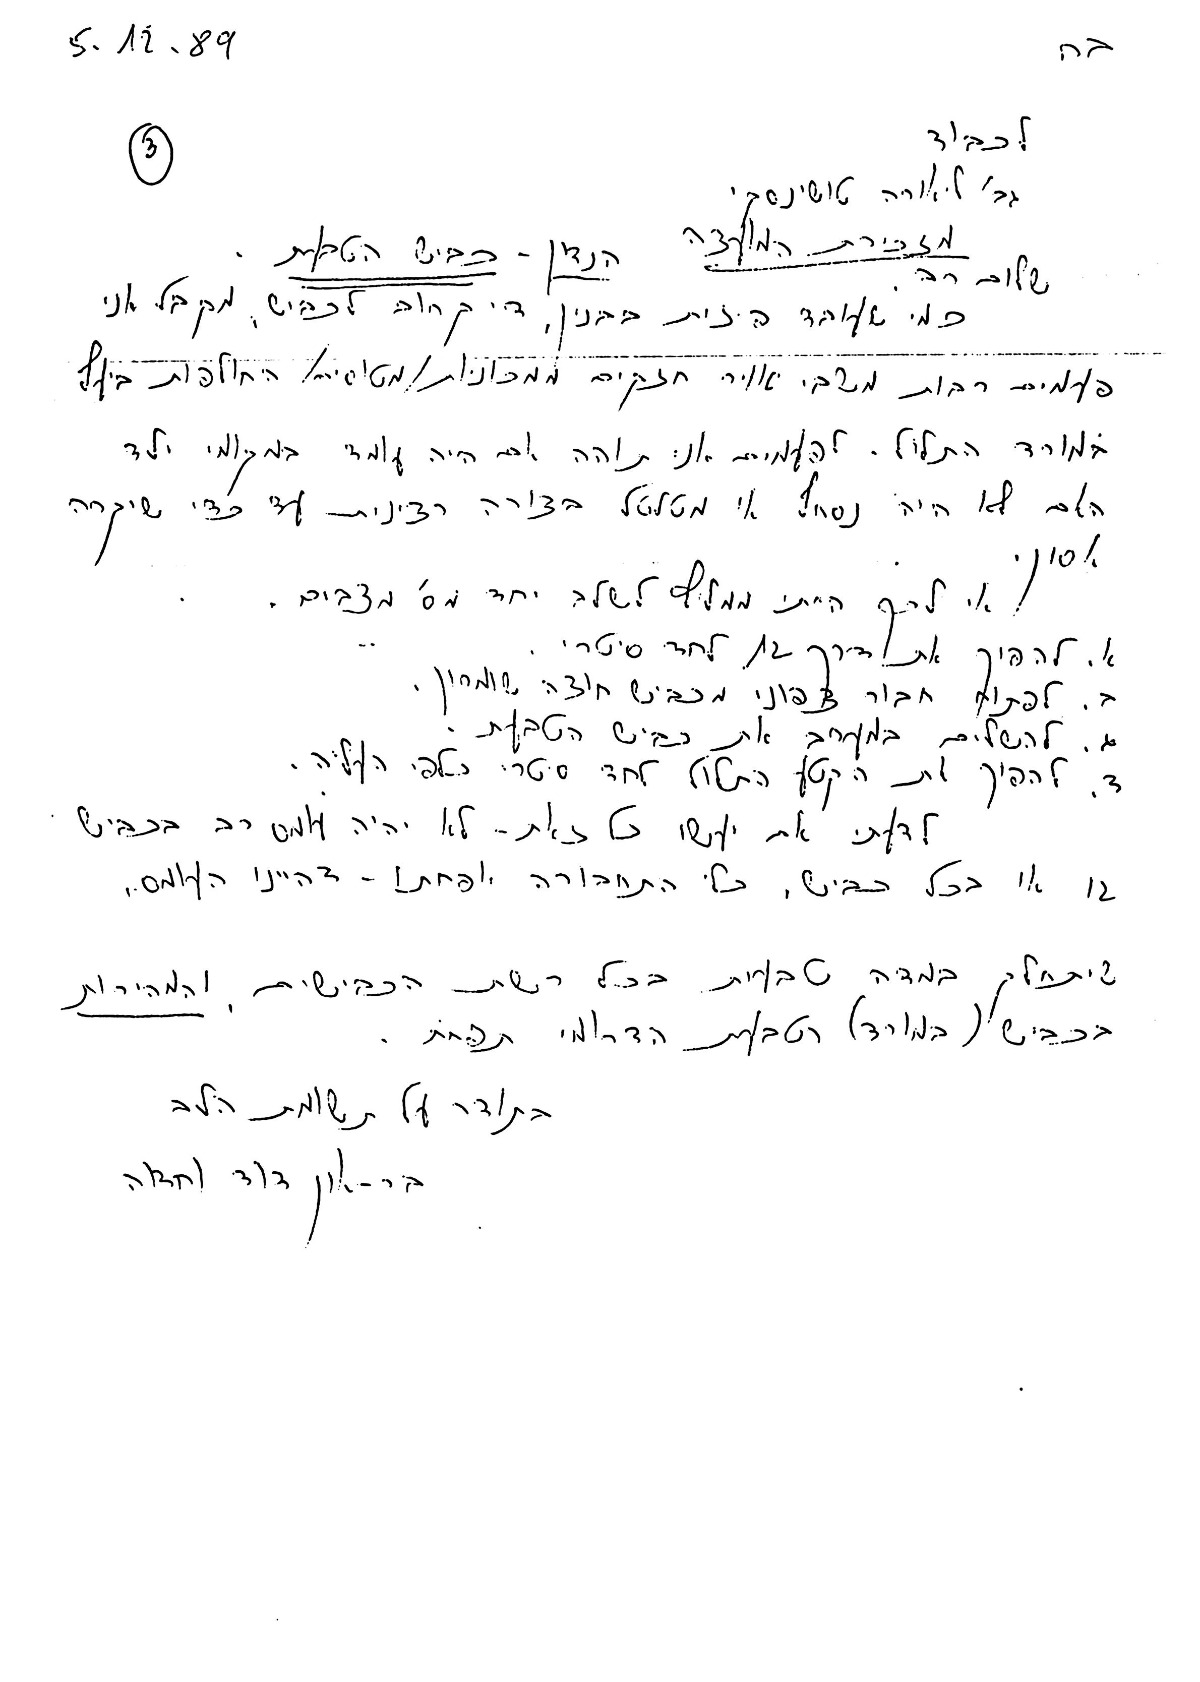 בה
5.12.89
3
לכבוד
גב' ליאורה טושינסקי
מזכירת המועצה
הנדון - כביש הטבעת.
שלום רב.
כמי שעובד פיזית בבנין, די קרוב לכביש, מקבל אני
פעמים רבות משבי אויר חזקים ממכוניות/מטוסים/ החולפות ביעף
במורד התלול. לפעמים אני תוהה אם היה עומד במקומי ילד
האם לא היה נסחף או מטלטל בצורה רצינית עד כדי שיקרה
אסון.
אי לכך הייתי ממליץ לשלב יחד מס' מצבים.
א. להפוך את דרך 12 לחד סיטרי.
ב. לפתוח חבור צפוני מכביש חוצה שומרון.
ג. להשלים במערב את כביש הטבעת.
ד. להפוך את הקטע התלול לחד סיטרי כלפי העליה.
לדעתי אם יעשו כל זאת - לא יהיה עומס רב בכביש
12 או בכל כביש, כלי התחבורה יפחתו - דהיינו העומס,
שיתחלק במדה טבעית בכל רשת הכבישים, והמהירות
בכביש (במורד) הטבעת הדרומי תפחת.
בתודה על תשומת הלב
בר-און דוד וחדוה